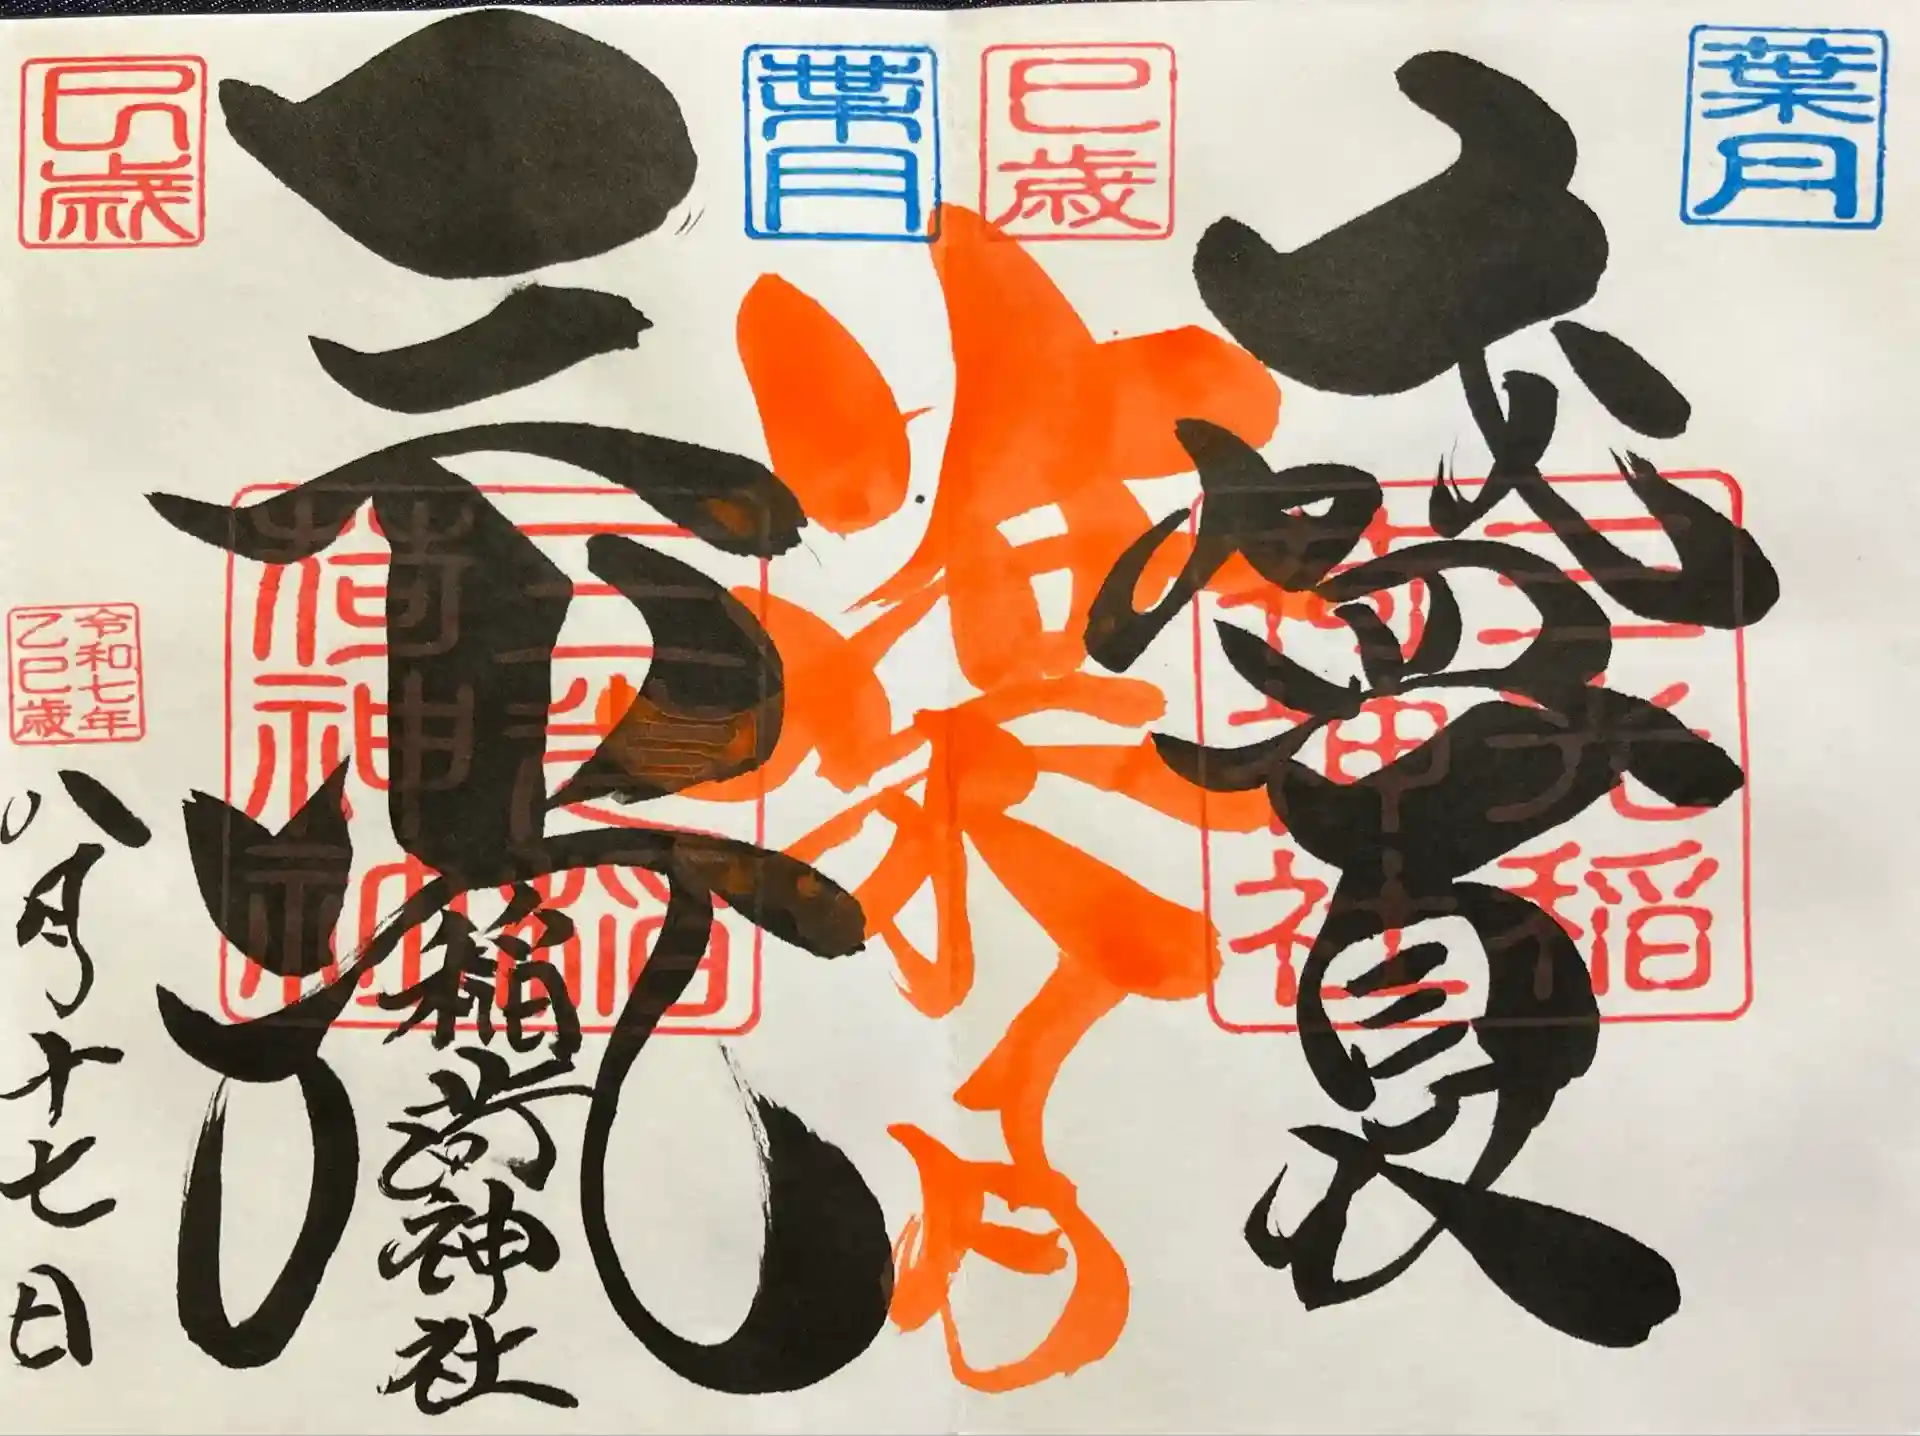 葉月
巳歳
三光稲荷神社
葉月
葉月
巳歳
三光稲荷神社
三光
稲荷神社
令和七年
乙巳歳
八月十七日